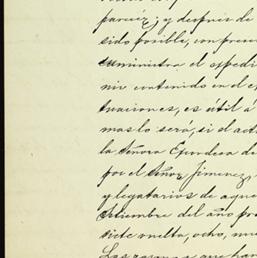 parecer; y despues de
sido posible, con pre
suministra el expedi
nir contenido en el e
tuaciones, es útil á
mas lo será, si el act
la Señora Epundea de
por el Señor Jimenez,
y legatarios de aque
Setiembre del año pro
siete vuelta, ocho, nue
Las razones que han